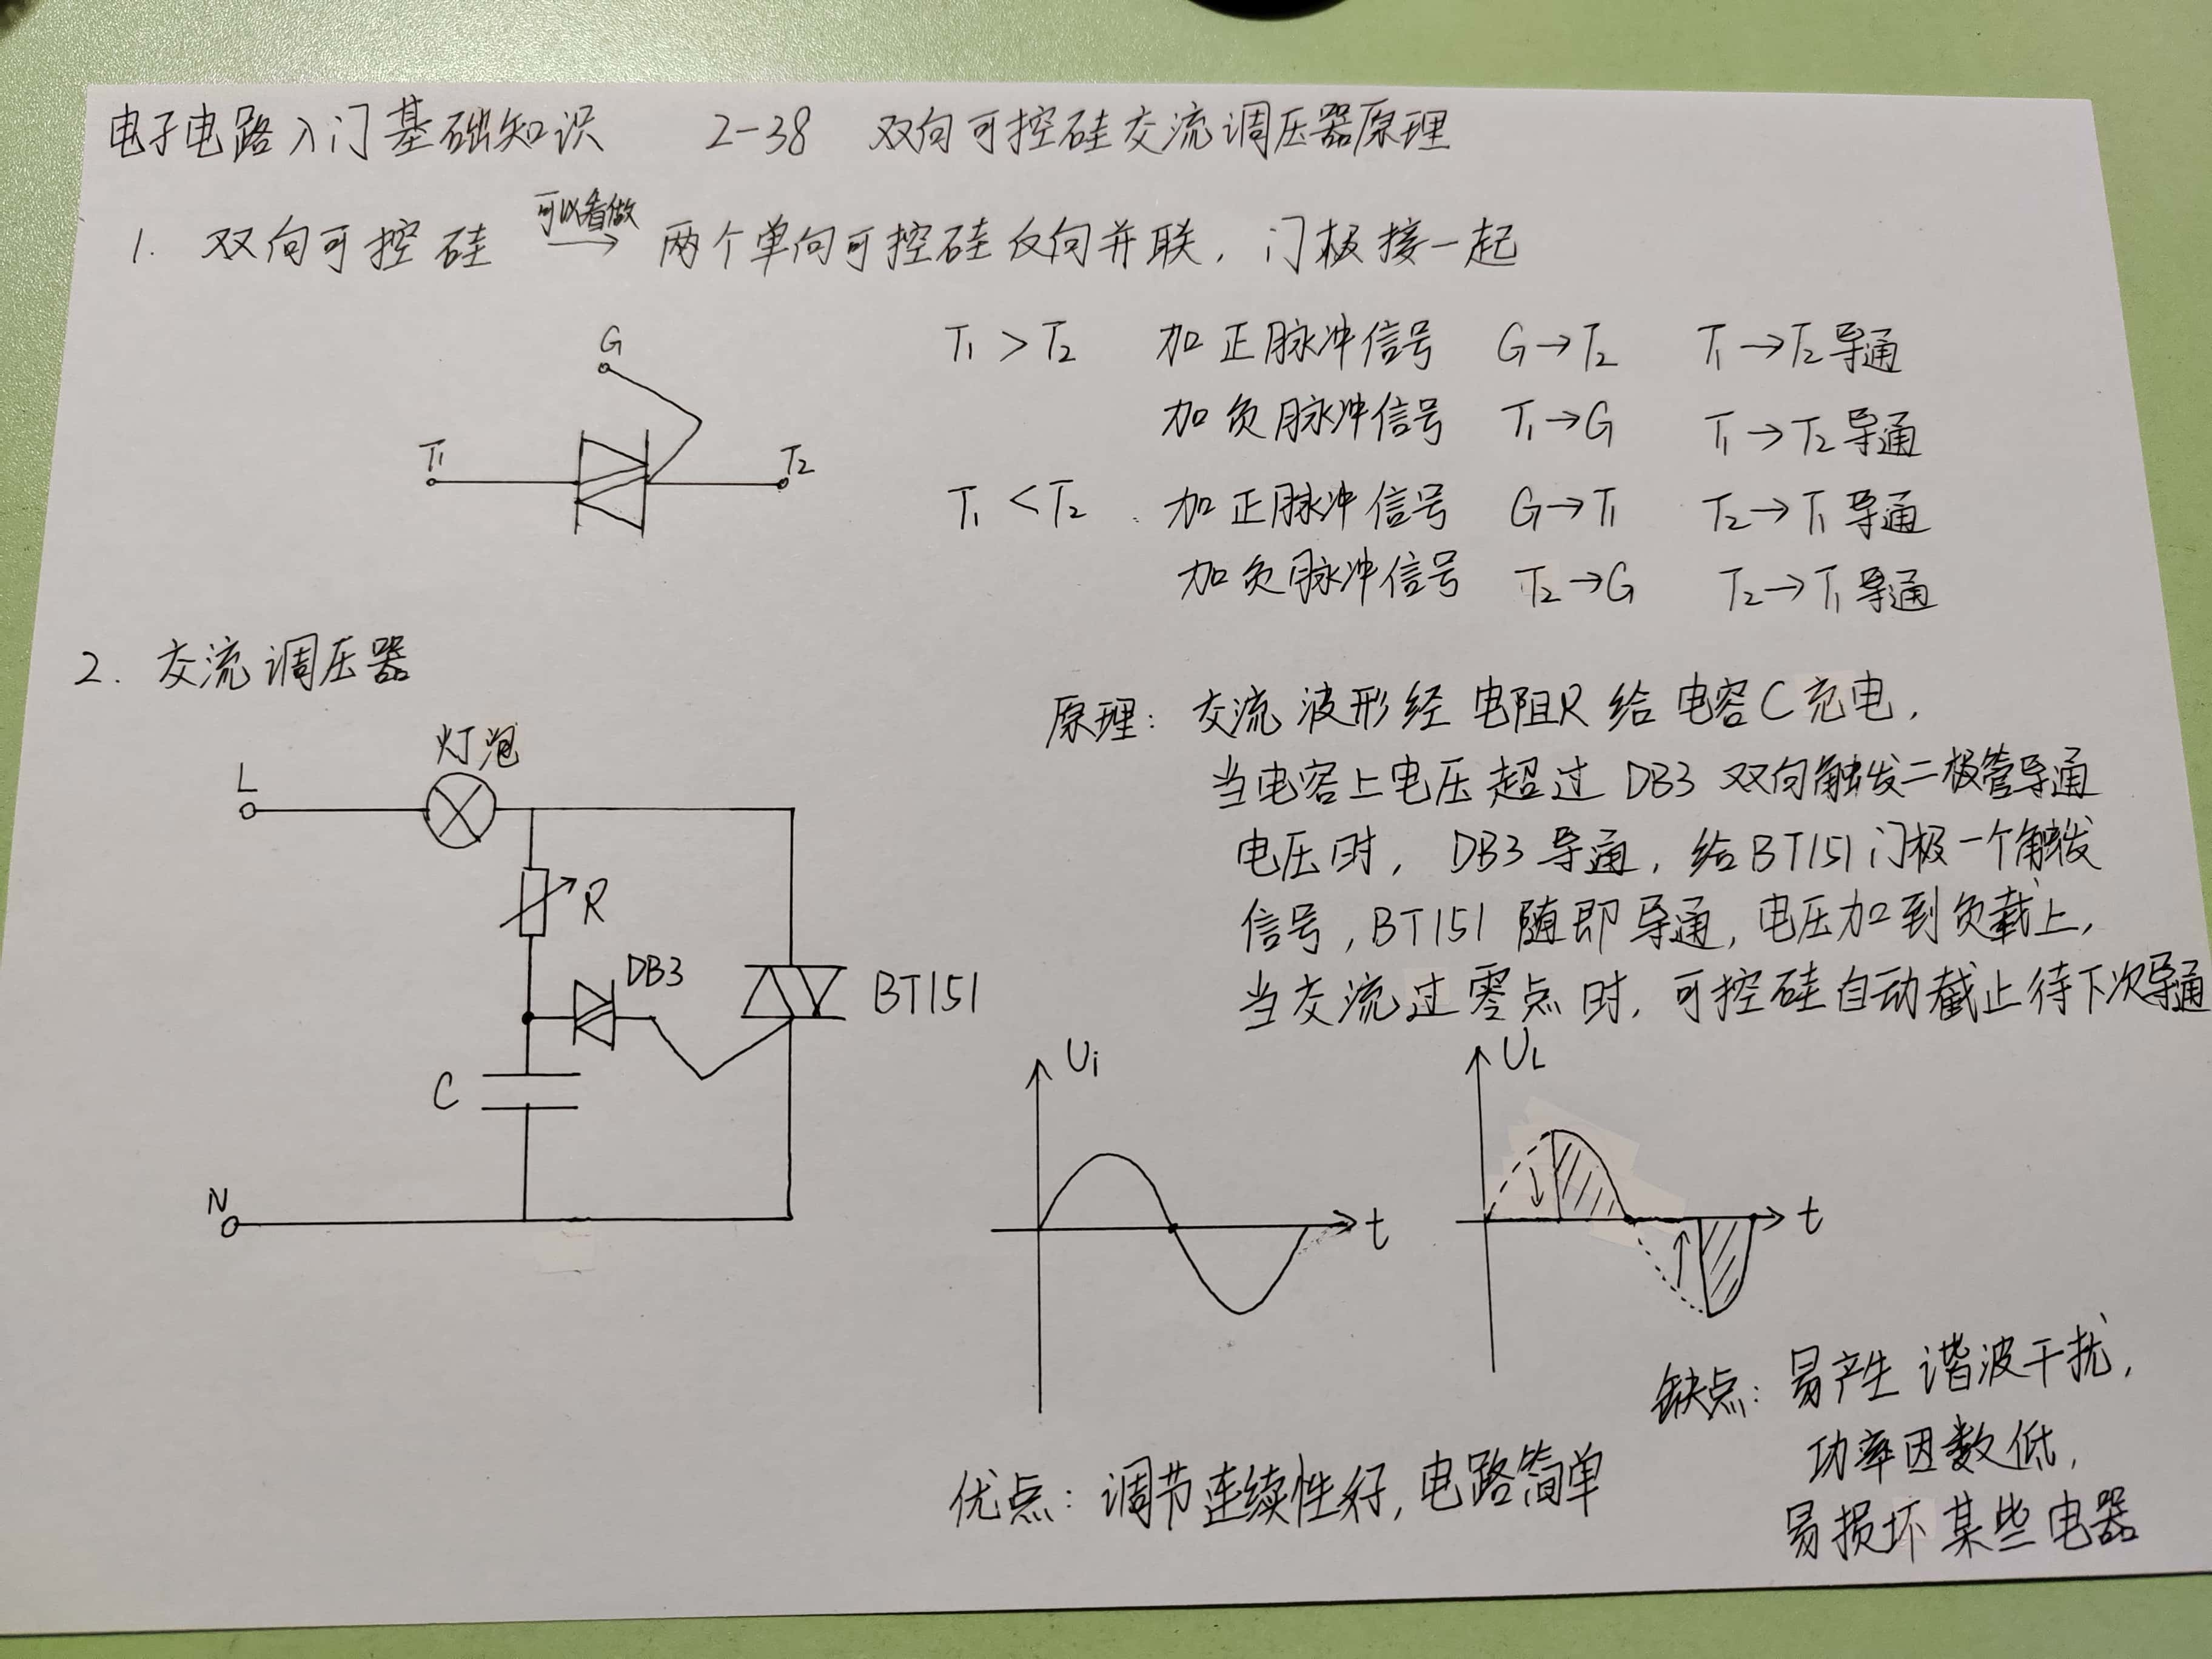 电子电路入门基础知识 2-38 双向可控硅交流调压器原理
1. 双向可控硅 可以看做 → 两个单向可控硅反向并联, 门极接一起
G
T1
T2
T1 > T2 加正脉冲信号 G→T2 T1→T2导通
加负脉冲信号 T1→G T1→T2导通
T1 < T2 加正脉冲信号 G→T1 T2→T1导通
加负脉冲信号 T2→G T2→T1导通
2. 交流调压器
灯泡
L
R
DB3
BT151
C
N
原理: 交流波形经电阻R给电容C充电,
当电容上电压超过DB3双向触发二极管导通
电压时, DB3导通, 给BT151门极一个触发
信号, BT151随即导通, 电压加到负载上,
当交流过零点时, 可控硅自动截止待下次导通
Ui
t
UL
t
优点: 调节连续性好, 电路简单
缺点: 易产生谐波干扰,
功率因数低,
易损坏某些电器